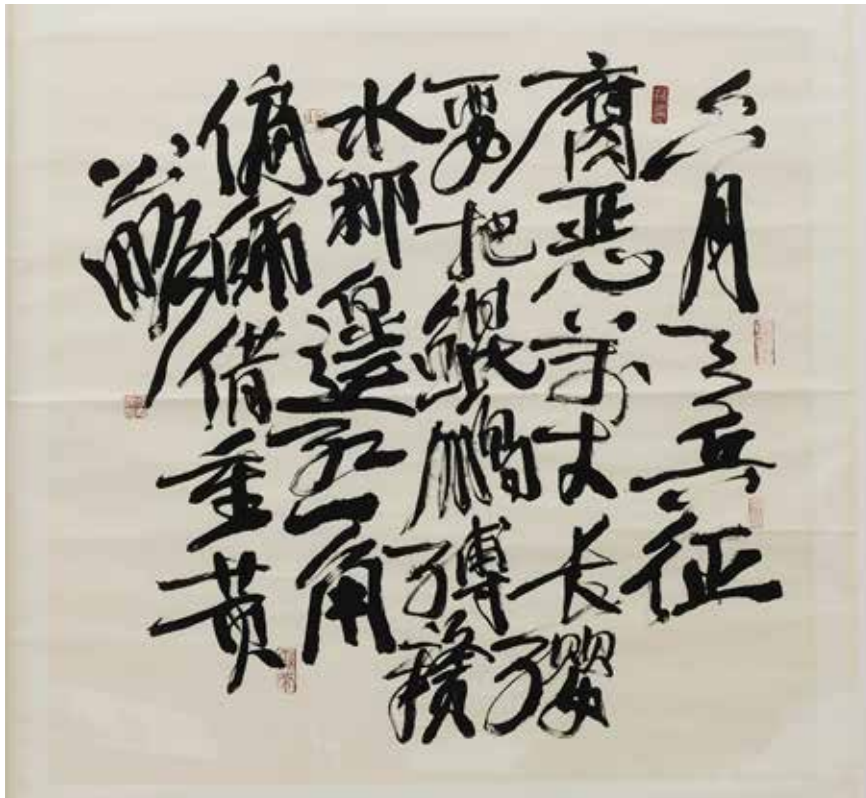 六月天兵征
腐恶萬丈长缨
要把鯤鵬缚贛
水那邊红一角
偏師借重黄
公略